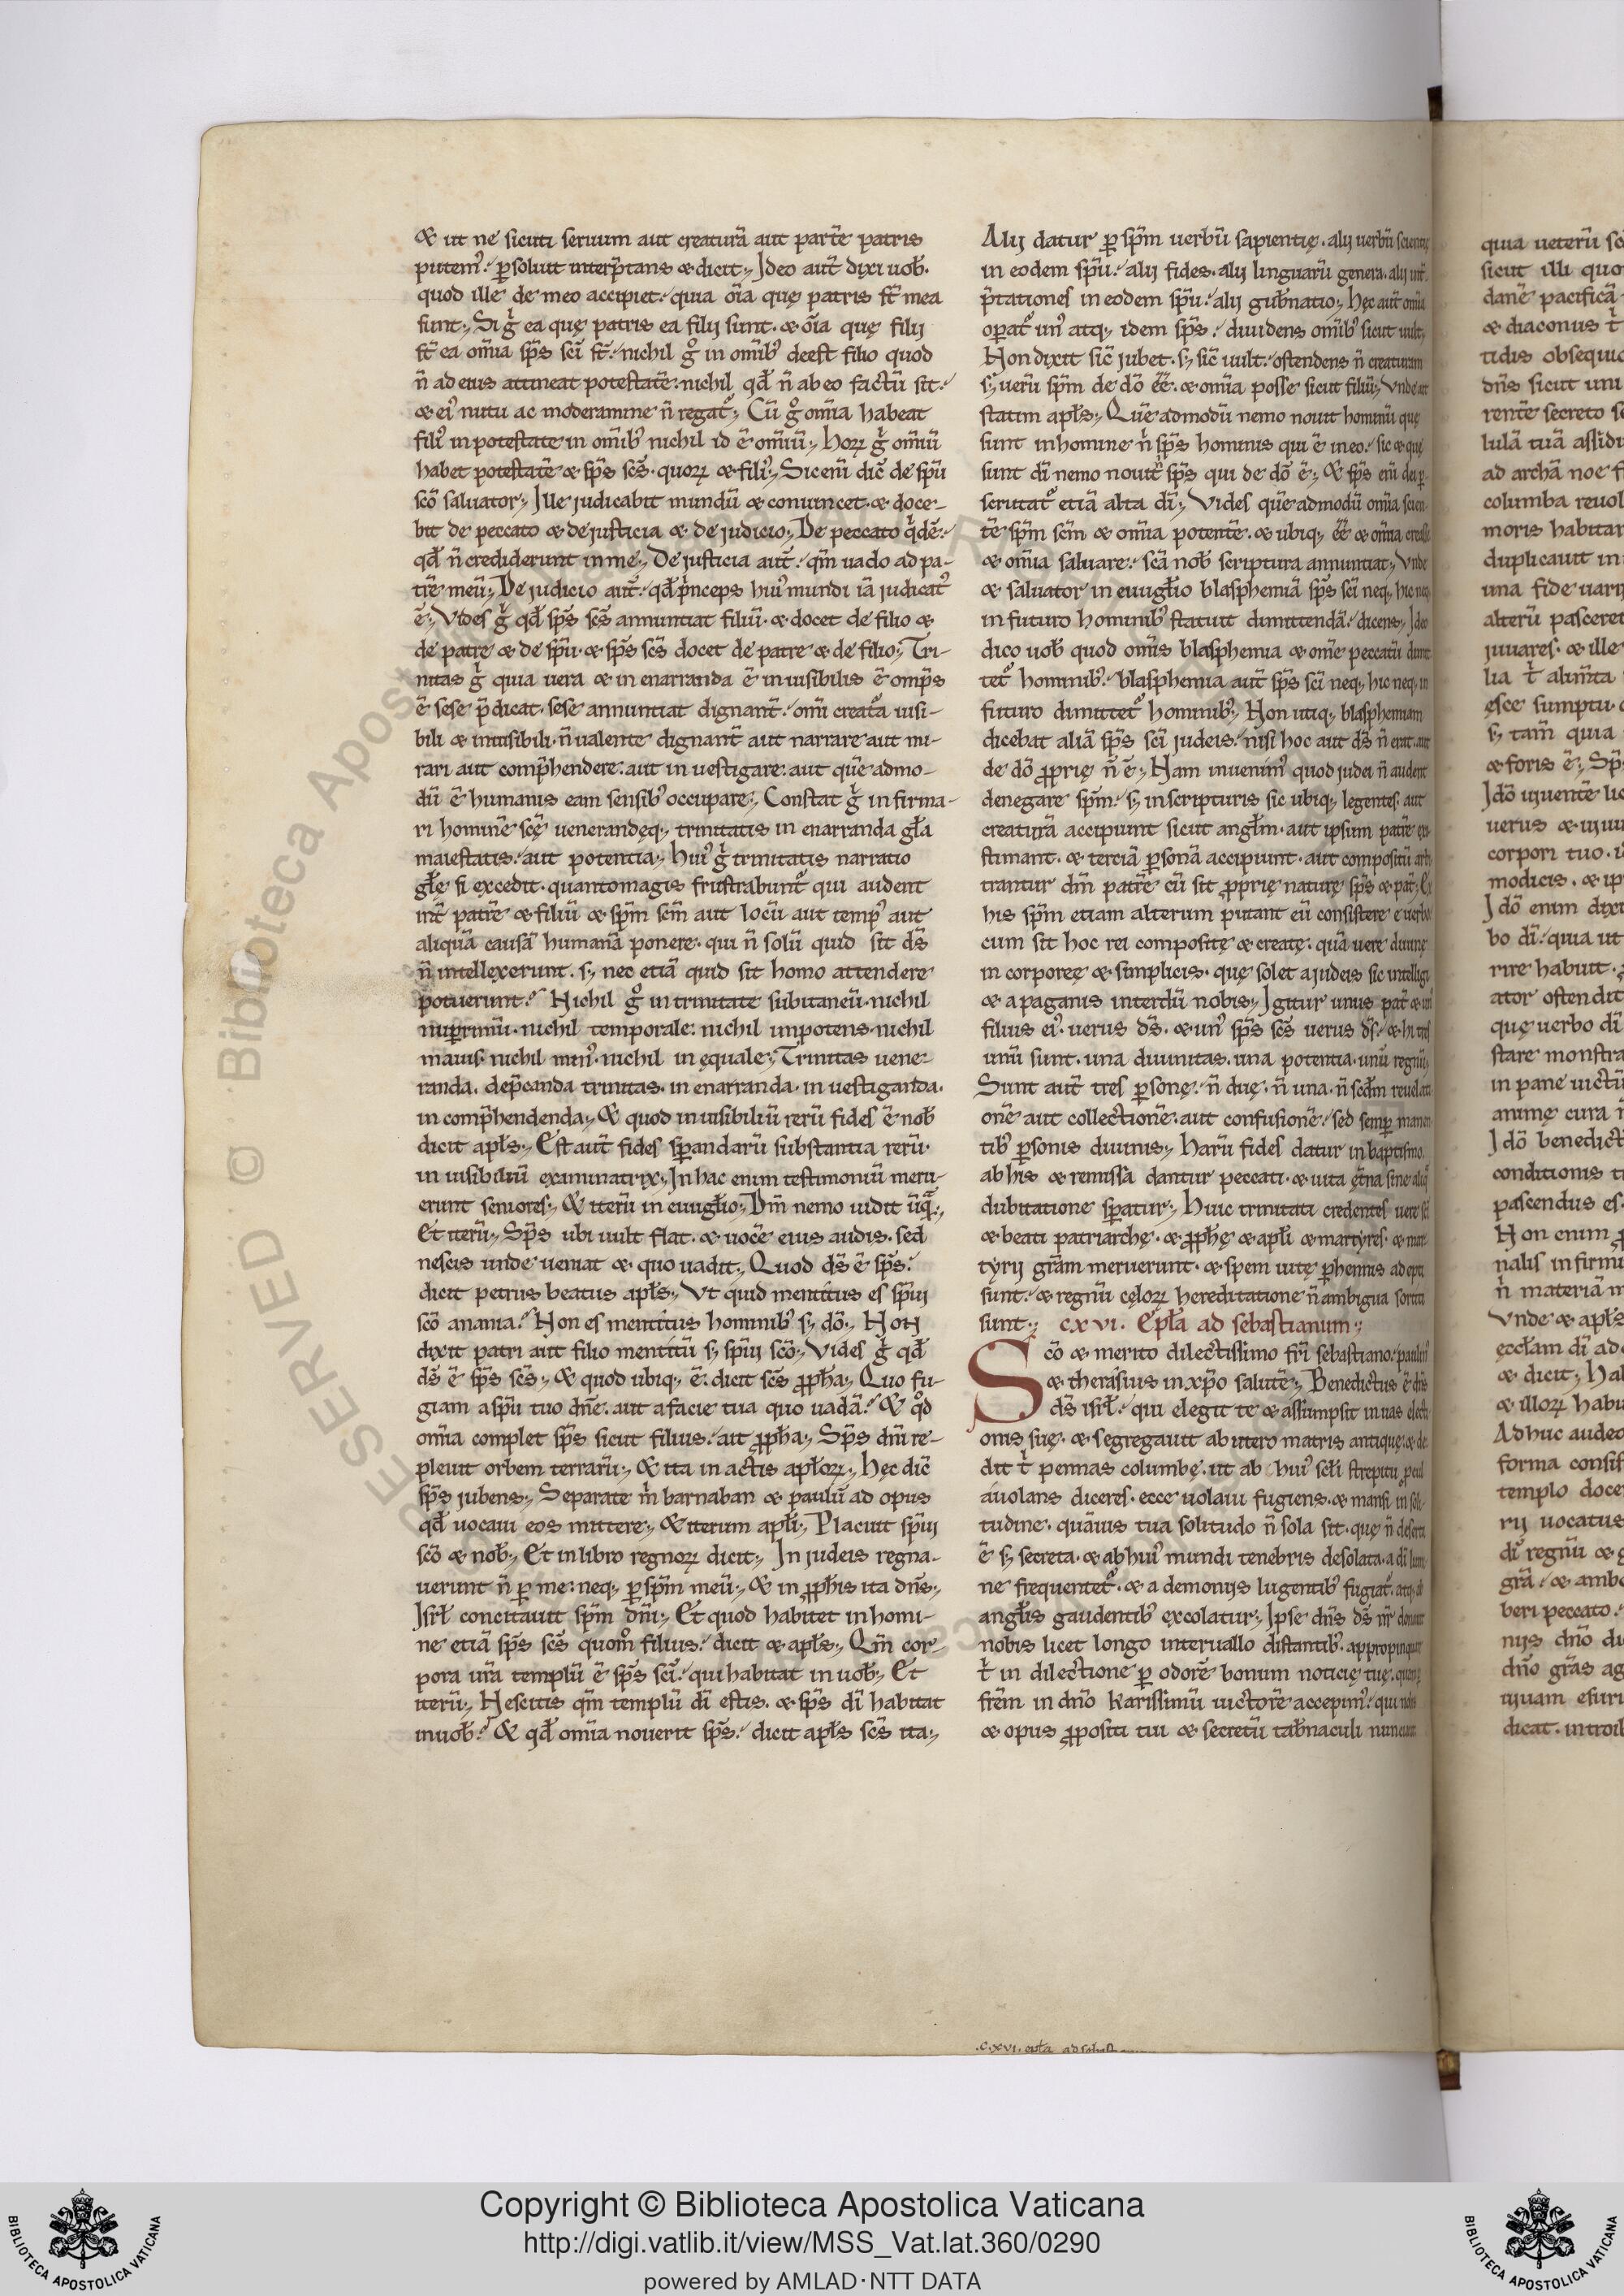 & ut ne sicuti seruum aut creaturā aut partē patris
putem᷒. ꝑsoluit interp̄tans & dicit; Ideo aut̄ dixi uob̄.
quod ille de meo accipiet. quia oīa quę patris st̄ mea
sunt; Si g̊ ea quę patris ea filij sunt. & oīa quę filij
st̄ ea om̄ia sp̄s sc̄i st̄. nichil g̊ in om̄ib᷒ deest filio quod
n̄ ad eius attineat potestatē. nichil qđ n̄ ab eo factū sit.
& ei᷒ nutu ac moderamine n̄ regat᷒; Cū g̊ om̄ia habeat
fili᷒ in potestate in om̄ib᷒ nichil id ē om̄iū; Hoꝝ g̊ om̄iū
habet potestatē & sp̄s sc̄s. quoꝝ & fili᷒; Sic enī dic̄ de sp̄u
sc̄o saluator; Ille judicabit mundū & conuincet. & doce-
bit de peccato & de justicia & de judicio; De peccato q̇dē.
qđ n̄ crediderunt in me; De justicia aut̄. qm̄ uado ad pa-
trē meū; De judicio aut̄. qđ ṗnceps hui᷒ mundi iā judicat᷒
ē; Vides g̊ qđ sp̄s sc̄s annuntiat filiū. & docet de filio &
de patre & de sp̄u. & sp̄s sc̄s docet de patre & de filio; Tri-
nitas g̊ quia uera & in enarranda ē inuisibilis ē omp̄s
ē sese p̄dicat. sese annuntiat dignant̄. om̄i creat̄a uisi-
bili & inuisibili. n̄ ualente dignant̄ aut narrare aut mi-
rari aut comp̄hendere. aut in uestigare. aut quē admo-
dū ē humanis eam sensib᷒ occupare; Constat g̊ in firma-
ri hominē sc̄ę uenerandęq; trinitatis in enarranda gl̄a
maiestatis. aut potentia; Hui᷒ g̊ trinitatis narratio
gl̄ę si excedit. quantomagis frustrabunt᷒ qui audent
int̄ patrē & filiū & sp̄m sc̄m aut locū aut temp᷒ aut
aliquā causā humanā ponere. qui n̄ solū quid sit d̄s
n̄ intellexerunt. s; nec etiā quid sit homo attendere
potuerunt. Nichil g̊ in trinitate subitaneū. nichil
nuꝑrimū. nichil temporale. nichil impotens. nichil
maius. nichil min᷒. nichil in ęquale; Trinitas uene-
randa. dep̄canda trinitas. in enarranda. in uestiganda.
in comp̄hendenda; & quod inuisibiliū rerū fides ē nob̄
dicit apl̄s; Est aut̄ fides sꝑandarū substantia rerū.
in uisibiliū examinatrix; In hac enim testimoniū meru-
erunt seniores; & iterū in euuglio; Dm̄ nemo uidit ūq̄;
Et iterū; Sp̄s ubi uult flat. & uocē eius audis. sed
nescis unde ueniat & quo uadit; Quod d̄s ē sp̄s.
dicit petrus beatus apl̄s; Vt quid mentitus es sp̄ui
sc̄o anania. Non es mentitus hominib᷒ s; dō; Non
dixit patri aut filio mentitū s; sp̄ui sc̄o; Vides g̊ qđ
d̄s ē sp̄s sc̄s; & quod ubiq; ē. dicit sc̄s ꝓph̄a; Quo fu-
giam a sp̄u tuo dn̄e. aut a facie tua quo uadā. & qđ
om̄ia complet sp̄s sicut filius. ait ꝓph̄a; Sp̄s dn̄i re-
pleuit orbem terrarū; & ita in actis apl̄oꝝ; Hęc dic̄
sp̄s jubens; Separate m̄ barnaban & paulū ad opus
qđ uocaui eos mittere; & iterum apl̄i; Placuit sp̄ui
sc̄o & nob̄; Et in libro regnoꝝ dicit; In judeis regna-
uerunt n̄ ꝑ me. neq; ꝑ sp̄m meū; & in ꝓph̄is ita dn̄s;
Isr̄l concitauit sp̄m dn̄i; Et quod habitet in homi-
ne etiā sp̄s sc̄s quom̊ filius. dicit & apl̄s; Qm̄ cor-
pora ur̄a templū ē sp̄s sc̄i. qui habitat in uob̄; Et
iterū; Nescitis qm̄ templū dī estis. & sp̄s dī habitat
in uob̄. & qđ om̄ia nouerit sp̄s. dicit apl̄s sc̄s ita;
Alij datur ꝑ sp̄m uerbū sapientię. alij uerbū scientię
in eodem sp̄u. alij fides. alij linguarū genera. alij int̄
p̄tationes in eodem sp̄u. alij gub̄natio; Hęc aut̄ om̄ia
operat᷒ un᷒ atq; idem sp̄s. diuidens om̄ib᷒ sicut uult;
Non dixit sic̄ jubet. s; sic̄ uult. ostendens n̄ creaturam
s; uerū sp̄m de dō ē̄ē. & om̄ia posse sicut filiū; Vnde ait
statim apl̄s; Quē admodū nemo nouit hominū quę
sunt in homine n̄ sp̄s hominis qui ē in eo. sic & quę
sunt dī nemo nouit n̄ sp̄s qui de dō ē; & sp̄s enī dei ꝑ-
scrutat᷒ etiā alta dī; Vides quē admodū om̄ia scien-
tē sp̄m sc̄m & om̄ia potentē. & ubiq; ē̄ē & om̄ia creasse
& om̄ia saluare. sc̄a nob̄ scriptura annuntiat; Vnde
& saluator in euuglio blasphemiā sp̄s sc̄i neq; hic neq;
in futuro hominib᷒ statuit dimittendā. dicens; Ideo
dico uob̄ quod om̄is blasphemia & om̄e peccatū dimit
tet᷒ hominib᷒. blasphemia aut̄ sp̄s sc̄i neq; hic neq; in
futuro dimittet᷒ hominib᷒; Non utiq; blasphemiam
dicebat aliā sp̄s sc̄i judeis. nisi hoc aut d̄s n̄ erat. aut
de dō ꝓprię n̄ ē; Nam inuenim᷒ quod judei n̄ audent
denegare sp̄m. s; in scripturis sic ubiq; legentes. aut
creaturā accipiunt sicut angl̄m. aut ipsum patrē exi-
stimant. & terciā ꝑsonā accipiunt. aut compositū arbi
trantur dm̄ patrē cū sit ꝓprię naturę sp̄s & pat̄; Ex
his sp̄m etiam alterum putant eū consistere e uerbo
cum sit hoc rei compositę & creatę. quā uere diuinę
in corporeę & simplicis. quę solet a judeis sic intelligi
& a paganis interdū nobis; Igitur unus pat̄ & un᷒
filius ei᷒. uerus d̄s. & un᷒ sp̄s sc̄s uerus d̄s. & hi tres
unū sunt. una diuinitas. una potentia. unū regnū;
Sunt aut̄ tres ꝑsonę. n̄ duę. n̄ una. n̄ scd̄m reuelati
onē aut collectionē. aut confusionē. sed semꝑ manen
tib᷒ ꝑsonis diuinis; Harū fides datur in baptismo.
ab his & remissa dantur peccati. & uita ęt̄na sine aliq̄
dubitatione sꝑatur; Huic trinitati credentes uere sc̄i
& beati patriarchę. & ꝓph̄ę & apl̄i & martyres. & mar
tyrij gr̄am meruerunt. & spem uitę ꝑhennis adepti
sunt. & regnū cęloꝝ hereditatione n̄ ambigua sortiti
sunt; cxvi. Epl̄a ad sebastianum;
Sc̄o & merito dilectissimo fr̄i sebastiano. paulin᷒
& therasius in xp̄o salutē; Benedictus ē dn̄s
d̄s isr̄l. qui elegit te & assumpsit in uas electi
onis suę. & segregauit ab utero matris antiquę. & de
dit t̄ pennas columbę. ut ab hui᷒ scl̄i strepitu procul
auolans diceres. ecce uolaui fugiens. & mansi in soli-
tudine. quāuis tua solitudo n̄ sola sit. que n̄ deserta
ē s; secreta. & ab hui᷒ mundi tenebris desolata. a dī lumi
ne frequentet᷒. & a demonijs lugentib᷒ fugiat᷒. atq; ab
angl̄is gaudentib᷒ excolatur; Ipse dn̄s d̄s nr̄ donauit
nobis licet longo interuallo distantib᷒. appropinquare
t̄ in dilectione ꝑ odorē bonum noticię tuę. quando
frēm in dn̄o karissimū uictorē accepim᷒. qui nobis
& opus ꝓpositi tui & secretū tab̄naculi nunciaret
.c.xvi. epl̄a ad
quia ueterū
sicut illi quo
danē pacificā
& diaconus t̄
tidis obsequi
dn̄s sicut uni
rentē secreto
lulā tuā assidu
ad archā noe
columba reuol
moris habitat
duplicauit in
una fide uari
alterū pasceret
juuares. & ille
lia t̄ alim̄ta
ęsce sumptu.
s; tam̄ quia
& foris ē; Sp̄
Idō uiuentē
uerus & uiui
corpori tuo.
modicis. & ip
Idō enim dixi
bo dī. quia ut
rire habuit.
ator ostendit
quę uerbo dī
stare monstra
in pane uictū
animę cura
Idō benedicti
conditionis
pascendus es.
Non enim
nalis infirmi
n̄ materiā
Vnde & apl̄s
ęccl̄am dī ad
& dicit; Ha
& illoꝝ habu
Adhuc audeo
forma consis
templo doce
rij uocatus
dī regnū &
grā. & ambo
beri peccato.
nijs dn̄o di
dn̄o gr̄as ag
uiuam esuri
dicat. introi
RESERVED © Biblioteca Apostolica Vaticana
Copyright © Biblioteca Apostolica Vaticana
http://digi.vatlib.it/view/MSS_Vat.lat.360/0290
powered by AMLAD·NTT DATA
BIBLIOTECA APOSTOLICA VATICANA
BIBLIOTECA APOSTOLICA VATICANA